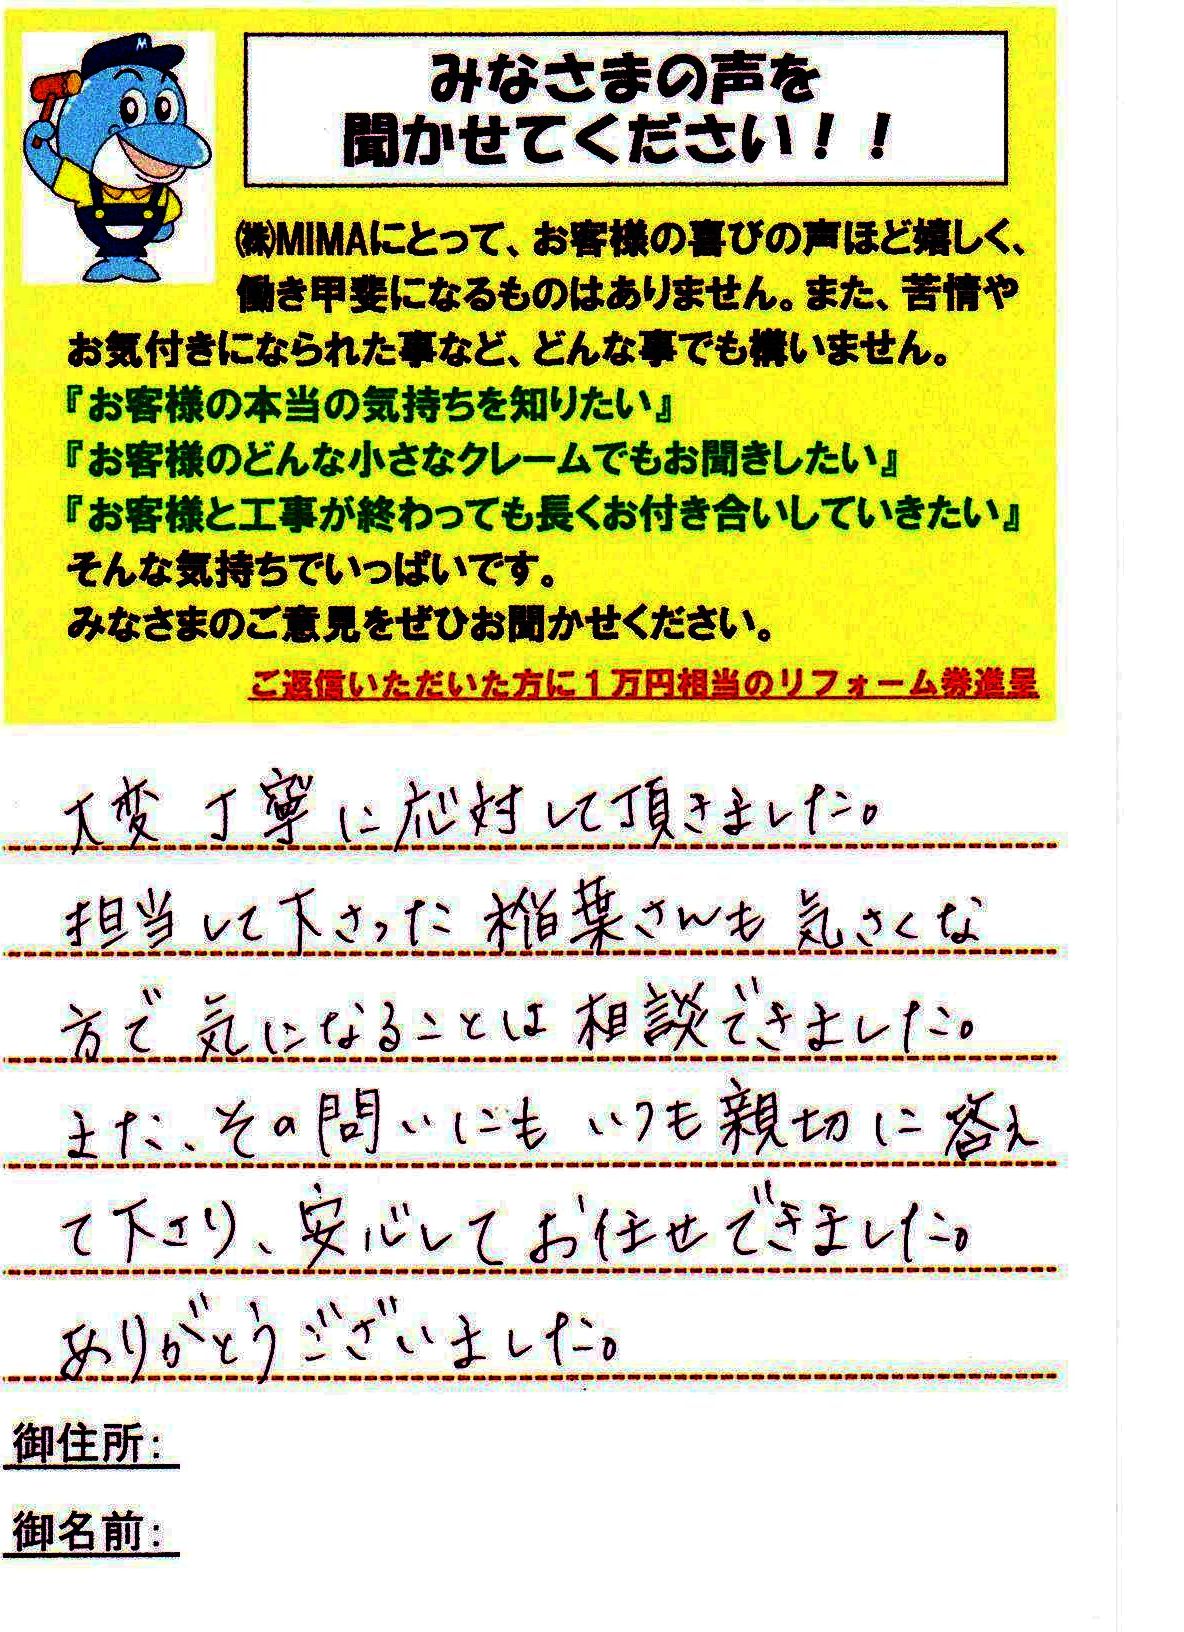 M
みなさまの声を
聞かせてください！！
㈱MIMAにとって、お客様の喜びの声ほど嬉しく、
働き甲斐になるものはありません。また、苦情や
お気付きになられた事など、どんな事でも構いません。
『お客様の本当の気持ちを知りたい』
『お客様のどんな小さなクレームでもお聞きしたい』
『お客様と工事が終わっても長くお付き合いしていきたい』
そんな気持ちでいっぱいです。
みなさまのご意見をぜひお聞かせください。
ご返信いただいた方に１万円相当のリフォーム券進呈
大変 丁寧に応対して頂きました。
担当して下さった 稲葉さんも 気さくな
方で 気になることは 相談できました。
また、その問いにも いつも親切に 答え
て下さり、安心して お任せできました。
ありがとうございました。
御住所：
御名前：